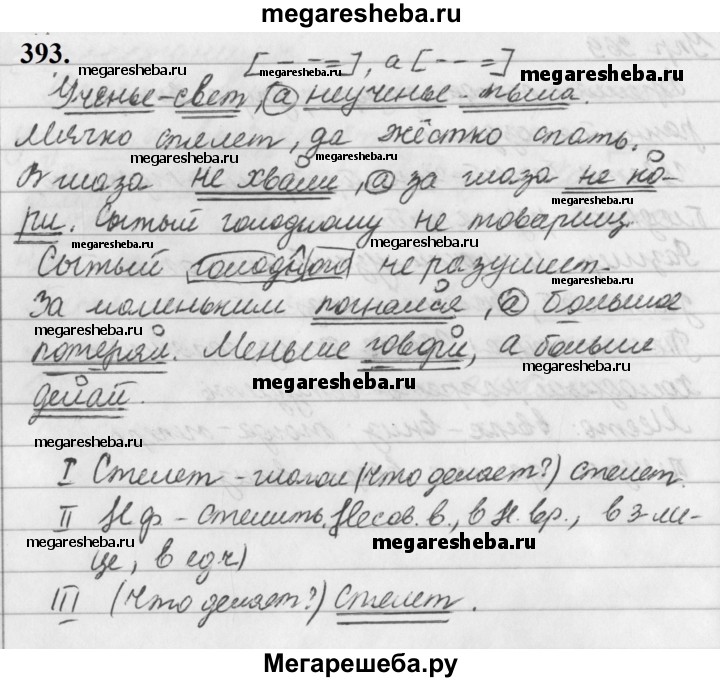 megaresheba.ru
393.
[– – =], а [– – =]
megaresheba.ru megaresheba.ru megaresheba.ru
Ученье - свет, а неученье - тьма.
Мягко стелет, да жёстко спать.
megaresheba.ru megaresheba.ru
В глаза не хвали, а за глаза не ко-
megaresheba.ru
ри. Сытый голодному не товарищ
megaresheba.ru megaresheba.ru
Сытый голодного не разумеет.
За маленьким погнался, а большое
megaresheba.ru megaresheba.ru
потерял. Меньше говори, а больше
megaresheba.ru
делай.
megaresheba.ru megaresheba.ru
I Стелет - глагол (что делает?) стелет.
II Н.ф. - стелить. Несов. в., в н. вр., в 3 ли-
megaresheba.ru megaresheba.ru
це, в ед.ч)
megaresheba.ru
III (что делает?) стелет.
megaresheba.ru
Мегарешеба.ру